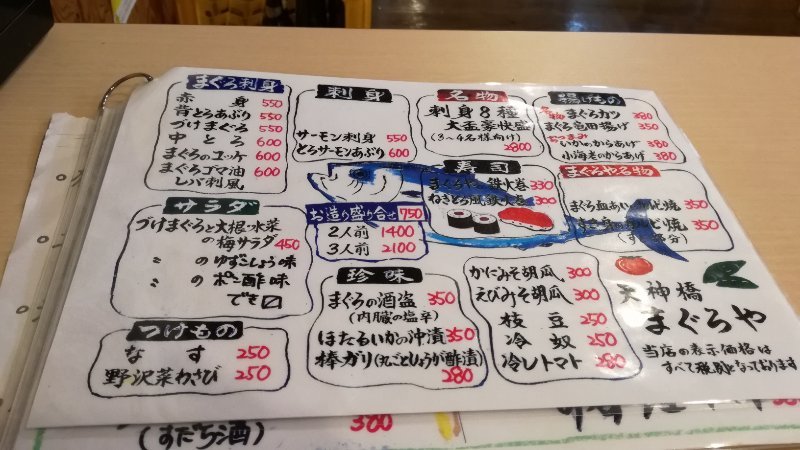 まぐろ刺身
赤身 550
背とろあぶり 550
づけまぐろ 550
中とろ 600
まぐろのユッケ 600
まぐろゴマ油 600
レバ刺風
刺身
サーモン刺身 550
とろサーモンあぶり 600
名物
刺身8種
大盃豪快盛
(3〜4名様向け)
2800
揚げもの
まぐろカツ 380
まぐろ竜田揚げ 350
いかのからあげ 380
小海老のからあげ 380
寿司
まぐろやの鉄火巻 330
ねぎとろ風鉄火巻 300
まぐろや名物
まぐろ血あい 焼 350
焼 350
サラダ
づけまぐろと大根・水菜
の梅サラダ 450
〃 のゆずこしょう味
〃 のポン酢味
でも〼
お造り盛り合せ 750
2人前 1400
3人前 2100
珍味
まぐろの酒盗 350
(内臓の塩辛)
ほたるいかの沖漬 350
棒ガリ(丸ごとしょうが酢漬)
280
かにみそ胡瓜 300
えびみそ胡瓜 300
枝豆 250
冷奴 250
冷しトマト 280
つけもの
なす 250
野沢菜わさび 250
天神橋
まぐろや
当店の表示価格は
すべて税込となっております
(すだち酒) 380